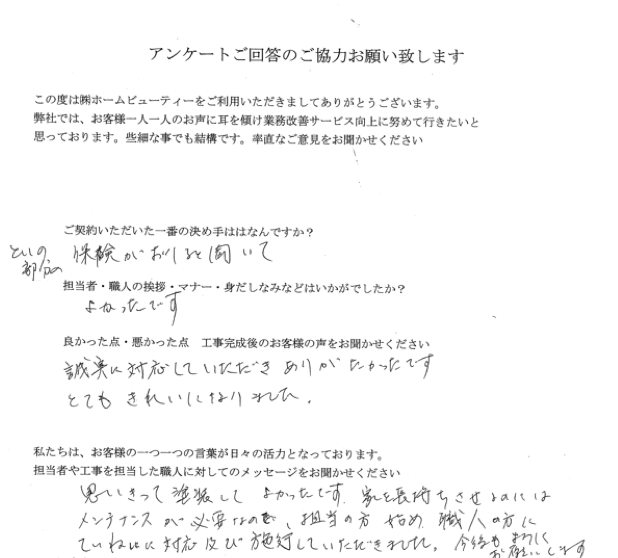 アンケートご回答のご協力お願い致します
この度は㈱ホームビューティーをご利用いただきましてありがとうございます。
弊社では、お客様一人一人のお声に耳を傾け業務改善サービス向上に努めて行きたいと
思っております。些細な事でも結構です。率直なご意見をお聞かせください
ご契約いただいた一番の決め手ははなんですか？
といの
部分の
保険がおりると聞いて
担当者・職人の挨拶・マナー・身だしなみなどはいかがでしたか？
よかったです
良かった点・悪かった点　工事完成後のお客様の声をお聞かせください
誠実に対応していただきありがたかったです
とてもきれいになりました。
私たちは、お客様の一つ一つの言葉が日々の活力となっております。
担当者や工事を担当した職人に対してのメッセージをお聞かせください
思いきって塗装してよかったです。家を長持ちさせるのには
メンテナンスが必要なので、担当の方始め職人の方に
ていねいに対応及び施行していただきました。今後もよろしく
お願いします